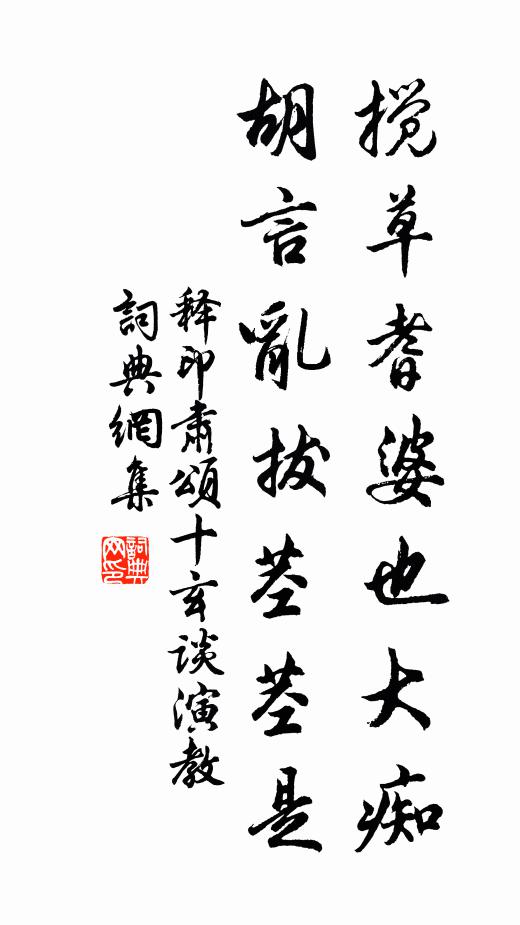 搅草耆婆也大痴
胡言亂拔茎茎是
释印肃頌十玄谈演教
詞典網集
詞典
网印